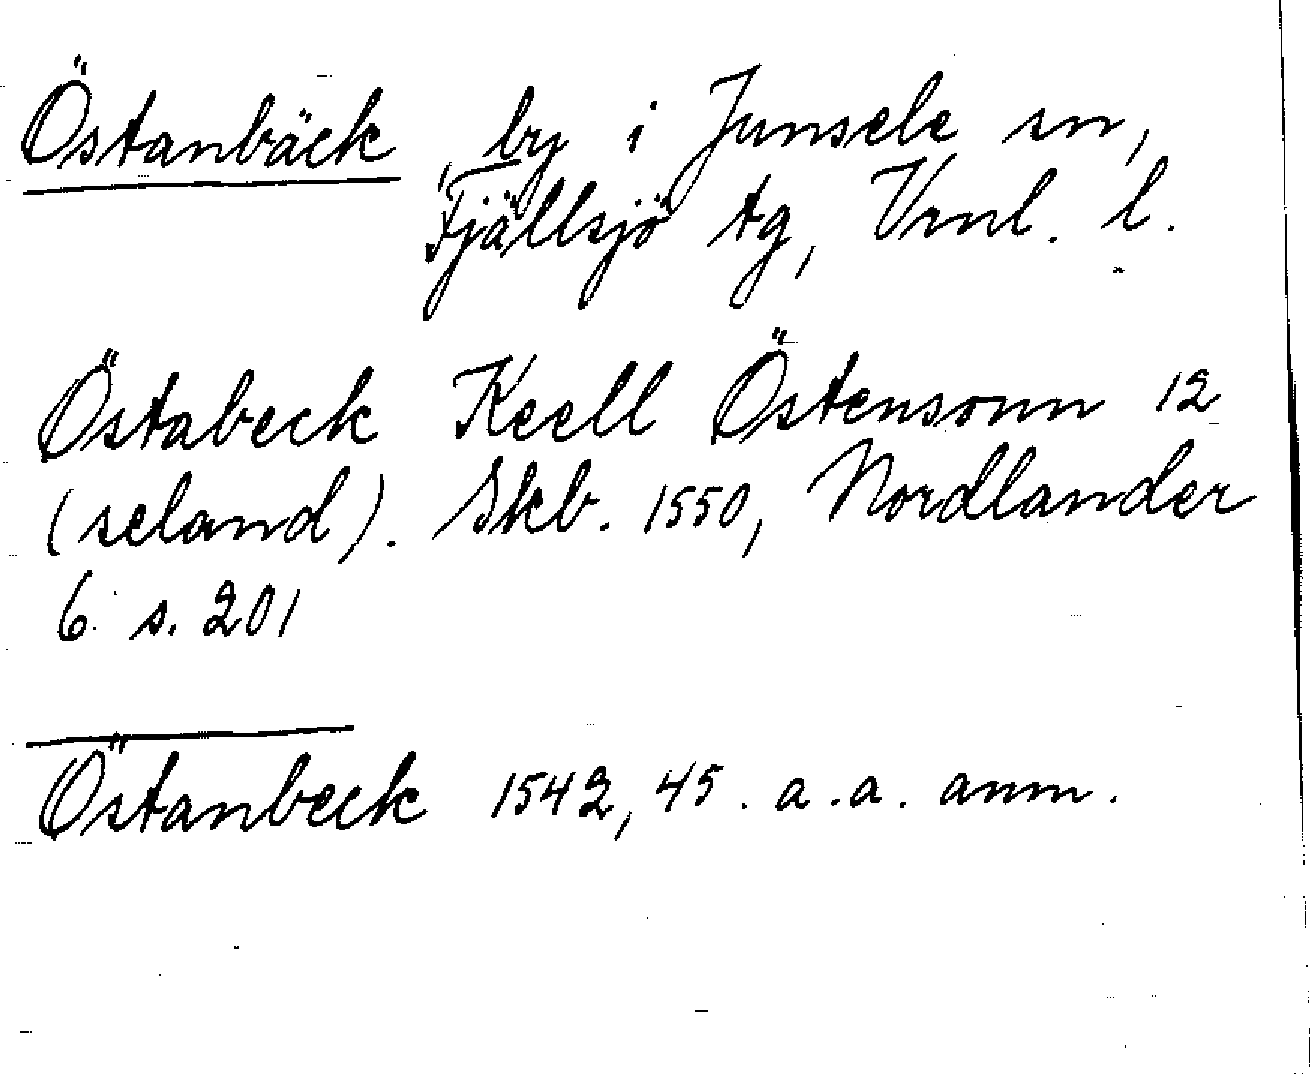 Östanbäck, by i Junsele sn,
Fjällsjö tg, Vrnl. l.
Östabeck Keell Östensonn 12
(seland). Skb. 1550, Nordlander
6 s. 201
Östanbeck 1542, 45. a.a. anm.